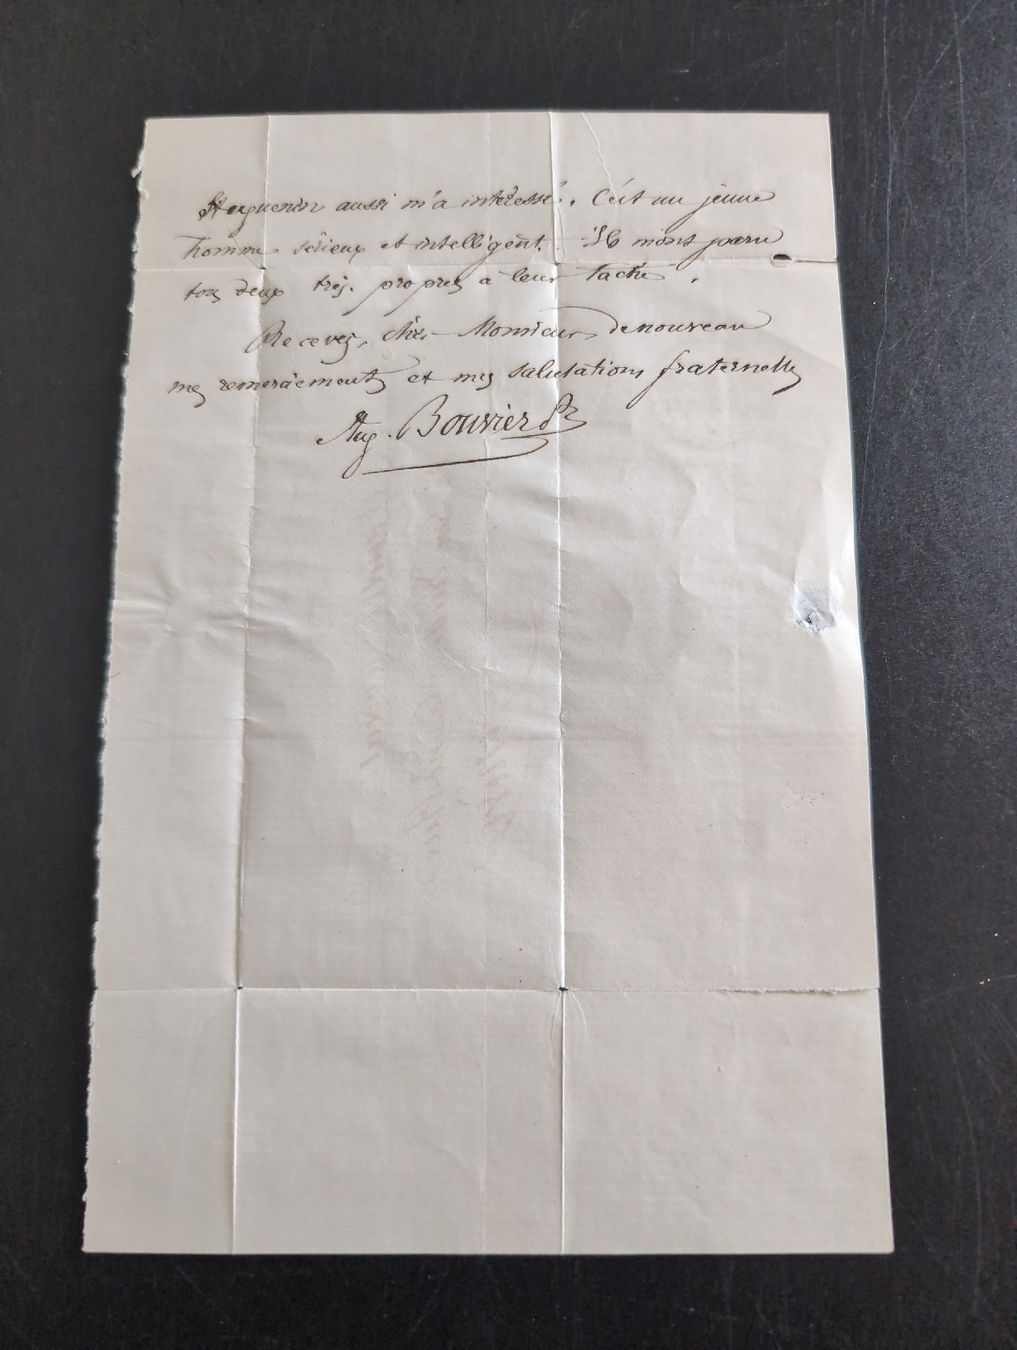 Huguenin aussi m'a intéressé. C'est un jeune
homme sérieux et intelligent. Ils m'ont paru
tous deux très propres à leur tâche.
Recevez, cher Monsieur, de nouveau
mes remerciements et mes salutations fraternelles
Aug. Bouvier